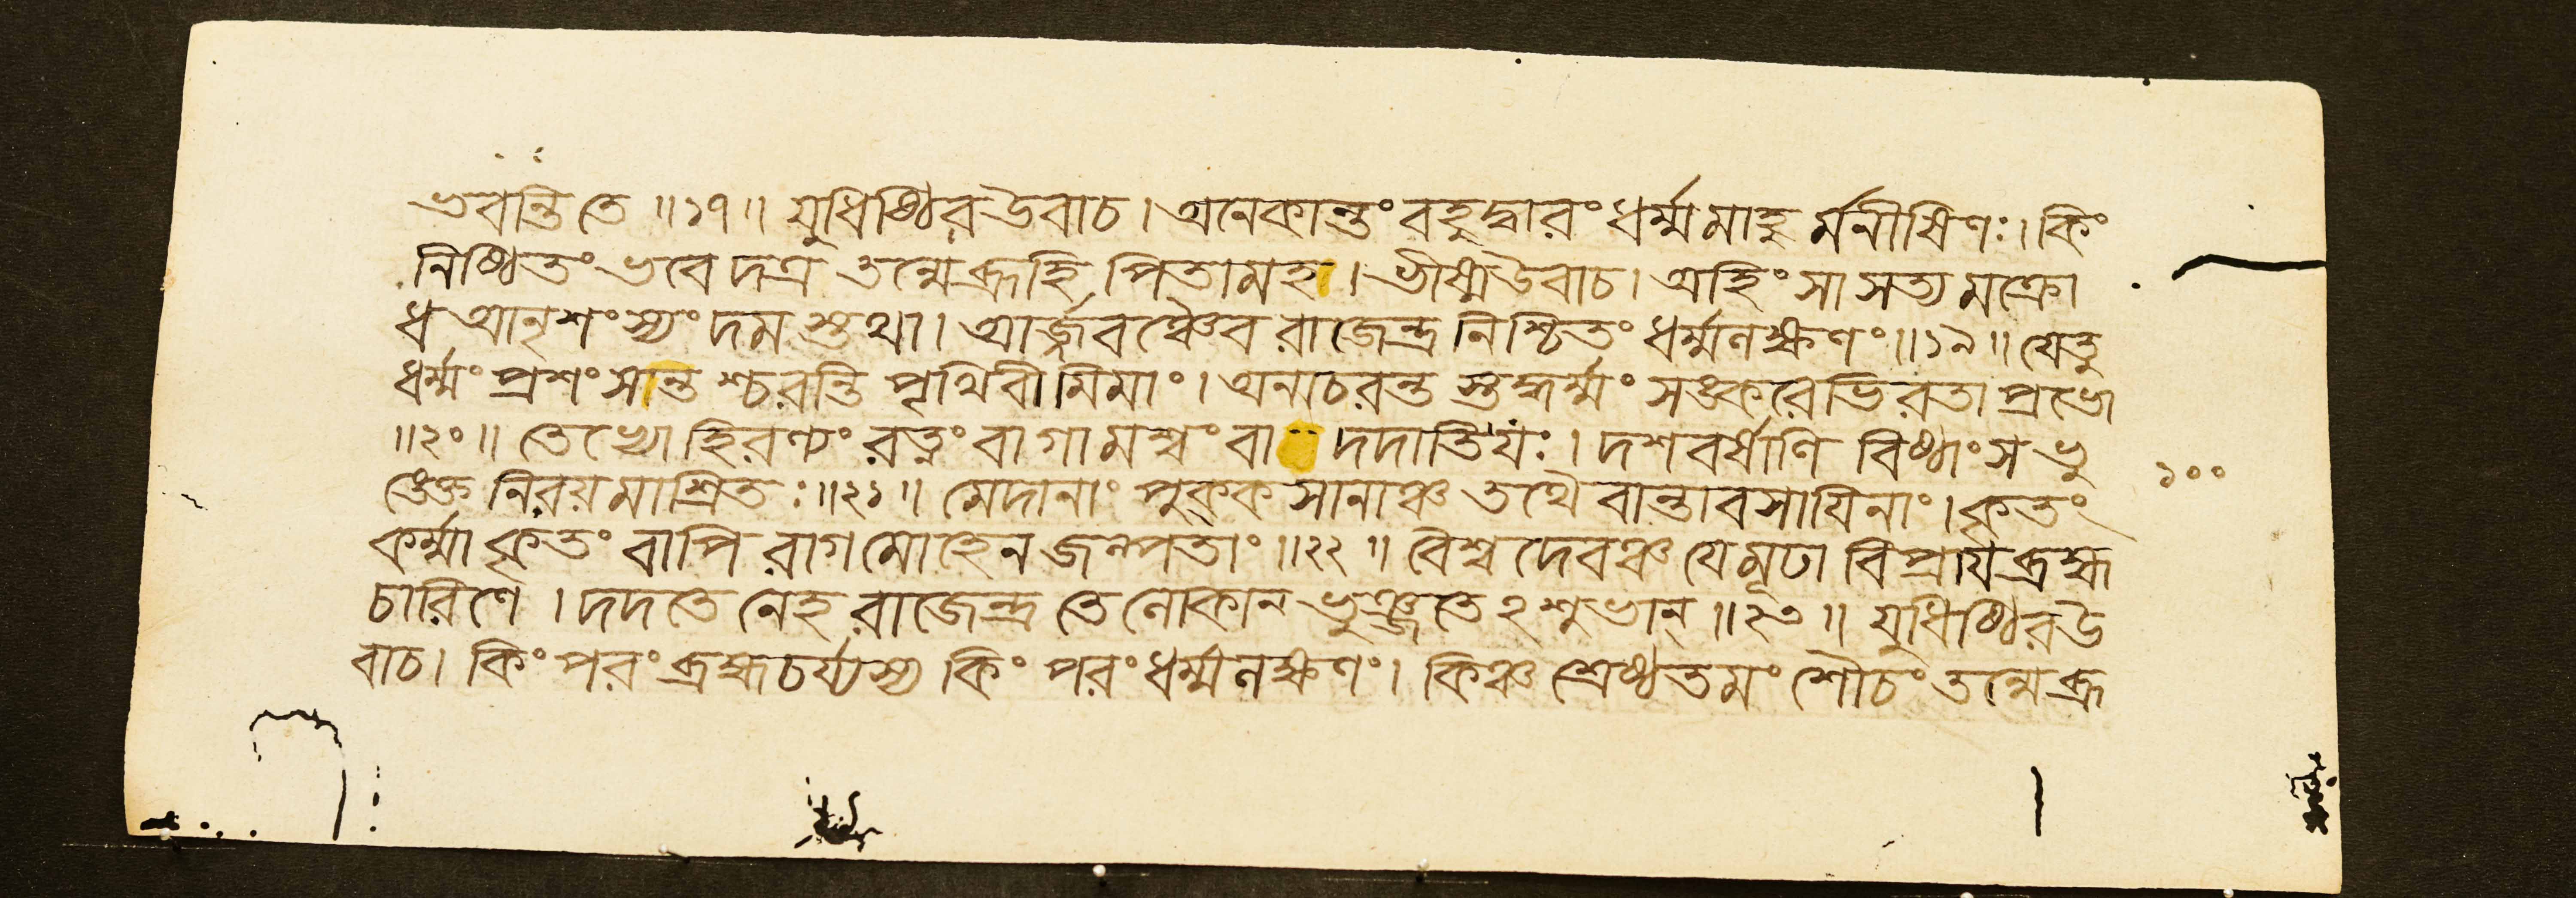 ভবন্তি তে ॥১৭॥ যুধিষ্ঠির উবাচ। অনেকান্তং বহুদ্বারং ধর্ম্মমাহু র্মনীষিণঃ। কিং
নিষ্ঠিতং ভবেদত্র তন্মেব্রূহি পিতামহ। ভীষ্মউবাচ। অহিংসা সত্য মক্রো
ধ আনৃশংস্যং দম স্তথা। আর্জ্জবঞ্চৈব রাজেন্দ্র নিশ্চিতং ধর্ম্মলক্ষণং॥১৯॥ যেতু
ধর্ম্মং প্রশংসন্ত শ্চরন্তি পৃথিবীমিমাং। অনাচরন্ত স্তদ্ধর্ম্মং সঙ্করেভিরতা প্রভো
॥২০॥ তেভ্যো হিরণ্যং রত্নং বাগামশ্বং বা দদাতিযঃ। দশবর্ষাণি বিষ্ঠাংস ভু
ঙ্ক্তে নিরয়মাশ্রিতঃ॥২১॥ মেদানাং পুক্কসানাঞ্চ তথৈ বান্তাবসাযিনাং। কৃতং
কর্ম্মাকৃতং বাপি রাগমোহেন জল্পতাং॥২২॥ বৈশ্বদেবঞ্চ যেমূঢা বিপ্রাযব্রহ্ম
চারিণে। দদতে নেহ রাজেন্দ্র তে লোকান ভুঞ্জতে ঽশুভান্॥২৩॥ যুধিষ্ঠিরউ
বাচ। কিং পরং ব্রহ্মচর্য্যস্য কিং পরং ধর্ম্মলক্ষণং। কিঞ্চ শ্রেষ্ঠতমং শৌচং তন্মেব্রূ
১০০